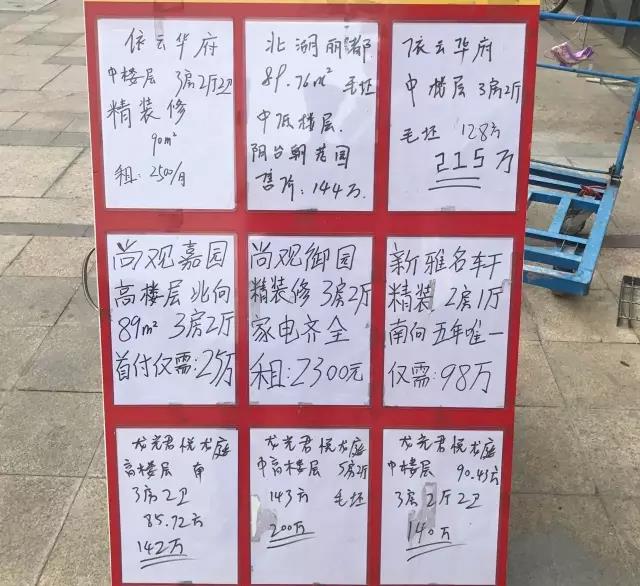 依云华府
中楼层 3房2厅2卫
精装修
90m²
租:2500/月
北湖丽都
89.76m² 毛坯
中低楼层.
阳台朝花园
售价:144万.
依云华府
中楼层 3房2厅
毛坯 128方
215万
尚观嘉园
高楼层 北向
89m² 3房2厅
首付仅需:25万
尚观御园
精装修 3房2厅
家电齐全
租:2300元
新雅名轩
精装 2房1厅
南向 五年唯一
仅需:98万
龙光君悦龙庭
高楼层 南
3房2卫
85.72方
142万
龙光君悦龙庭
中高楼层 5房2厅
143方 毛坯
200万
龙光君悦龙庭
中楼层 90.43方
3房2厅2卫
140万